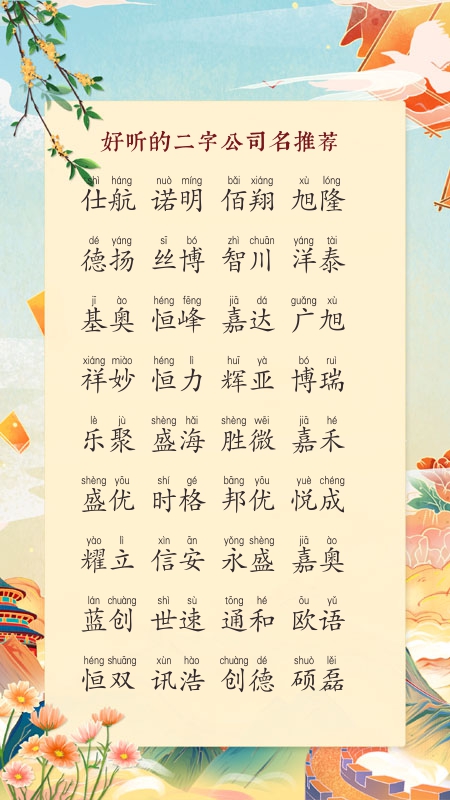 好听的二字公司名推荐
shì háng nuò míng bǎi xiáng xù lóng
仕航 诺明 佰翔 旭隆
dé yáng sī bó zhì chuān yáng tài
德扬 丝博 智川 洋泰
jī ào héng fēng jiā dá guǎng xù
基奥 恒峰 嘉达 广旭
xiáng miào héng lì huī yà bó ruì
祥妙 恒力 辉亚 博瑞
lè jù shèng hǎi shèng wēi jiā hé
乐聚 盛海 胜微 嘉禾
shèng yōu shí gé bāng yōu yuè chéng
盛优 时格 邦优 悦成
yào lì xìn ān yǒng shèng jiā ào
耀立 信安 永盛 嘉奥
lán chuàng shì sù tōng hé ōu yǔ
蓝创 世速 通和 欧语
héng shuāng xùn hào chuàng dé shuò lěi
恒双 讯浩 创德 硕磊